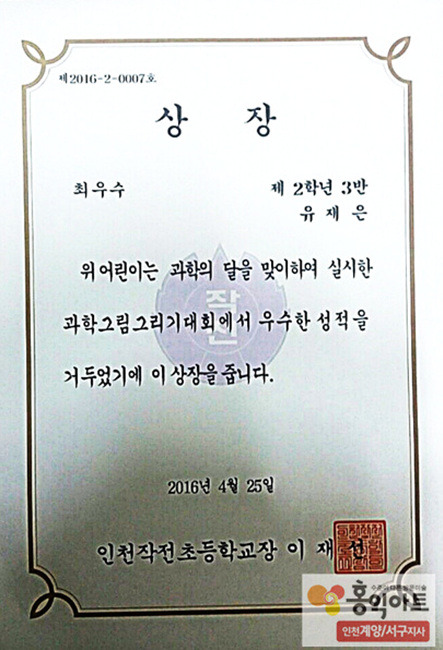 제2016-2-0007호
상 장
최우수 제 2학년 3반
유 재 은
위 어린이는 과학의 달을 맞이하여 실시한
과학그림그리기대회에서 우수한 성적을
거두었기에 이 상장을 줍니다.
작전
2016년 4월 25일
인천작전초등학교장 이 재 선
홍익아트
인천계양/서구지사